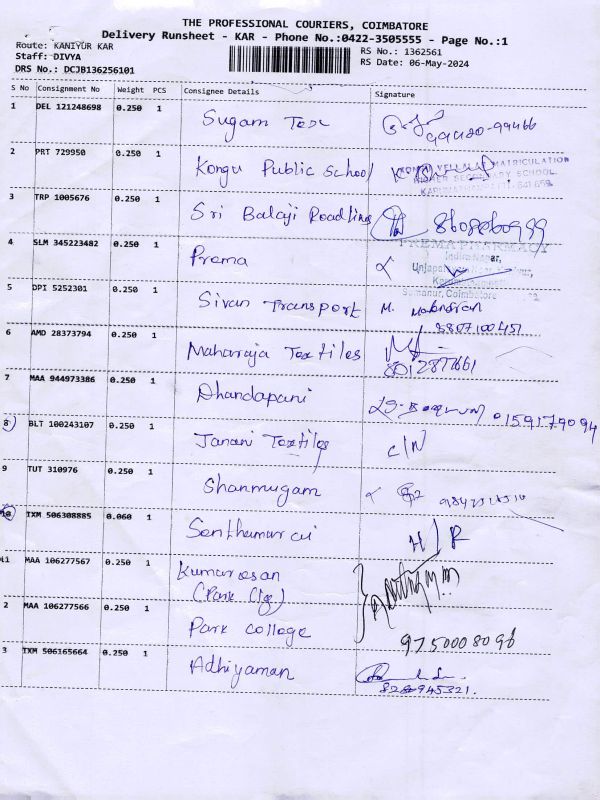 THE PROFESSIONAL COURIERS, COIMBATORE
Delivery Runsheet - KAR - Phone No.:0422-3505555 - Page No.:1
Route: KANIYUR KAR
RS No.: 1362561
Staff: DIVYA
RS Date: 06-May-2024
DRS No.: DCJB136256101
S No Consignment No Weight PCS Consignee Details Signature
1 DEL 121248698 0.250 1 Sugam Tex 99420-99466
2 PRT 729950 0.250 1 Kongu Public School
KONGU VELLALAR MATRICULATION
HIGHER SECONDARY SCHOOL,
3 TRP 1005676 0.250 1 Sri Balaji Roadlines 8608860999
4 SLM 345223482 0.250 1 Prema
PREMA PHARMACY
Indira Nagar,
Sumanur, Coimbatore
5 DPI 5252301 0.250 1 Sivan Transport M.
8807100451
6 AMD 28373794 0.250 1 Maharaja Textiles
8012877661
7 MAA 944973386 0.250 1 Dhandapani 0159179094
8 BLT 100243107 0.250 1 Janani Textiles C/N
9 TUT 310976 0.250 1 Shanmugam
10 TXM 506308885 0.060 1 Senthamarai H/R
11 MAA 106277567 0.250 1 Kumaresan
(Park Clg)
2 MAA 106277566 0.250 1 Park College 9750008096
3 TXM 506165664 0.250 1 Adhiyaman